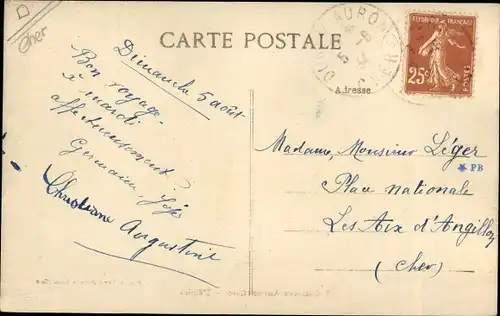 D
Cher
CARTE POSTALE
Dimanche 5 août
Bon voyage
à mardi
affectueusement
Germaine
Christiane
Augustine
CHER
REPUBLIQUE FRANÇAISE
25c
POSTES
Adresse
Madame, Monsieur Léger
PB
Place nationale
Les Aix d'Angillon
(Cher)